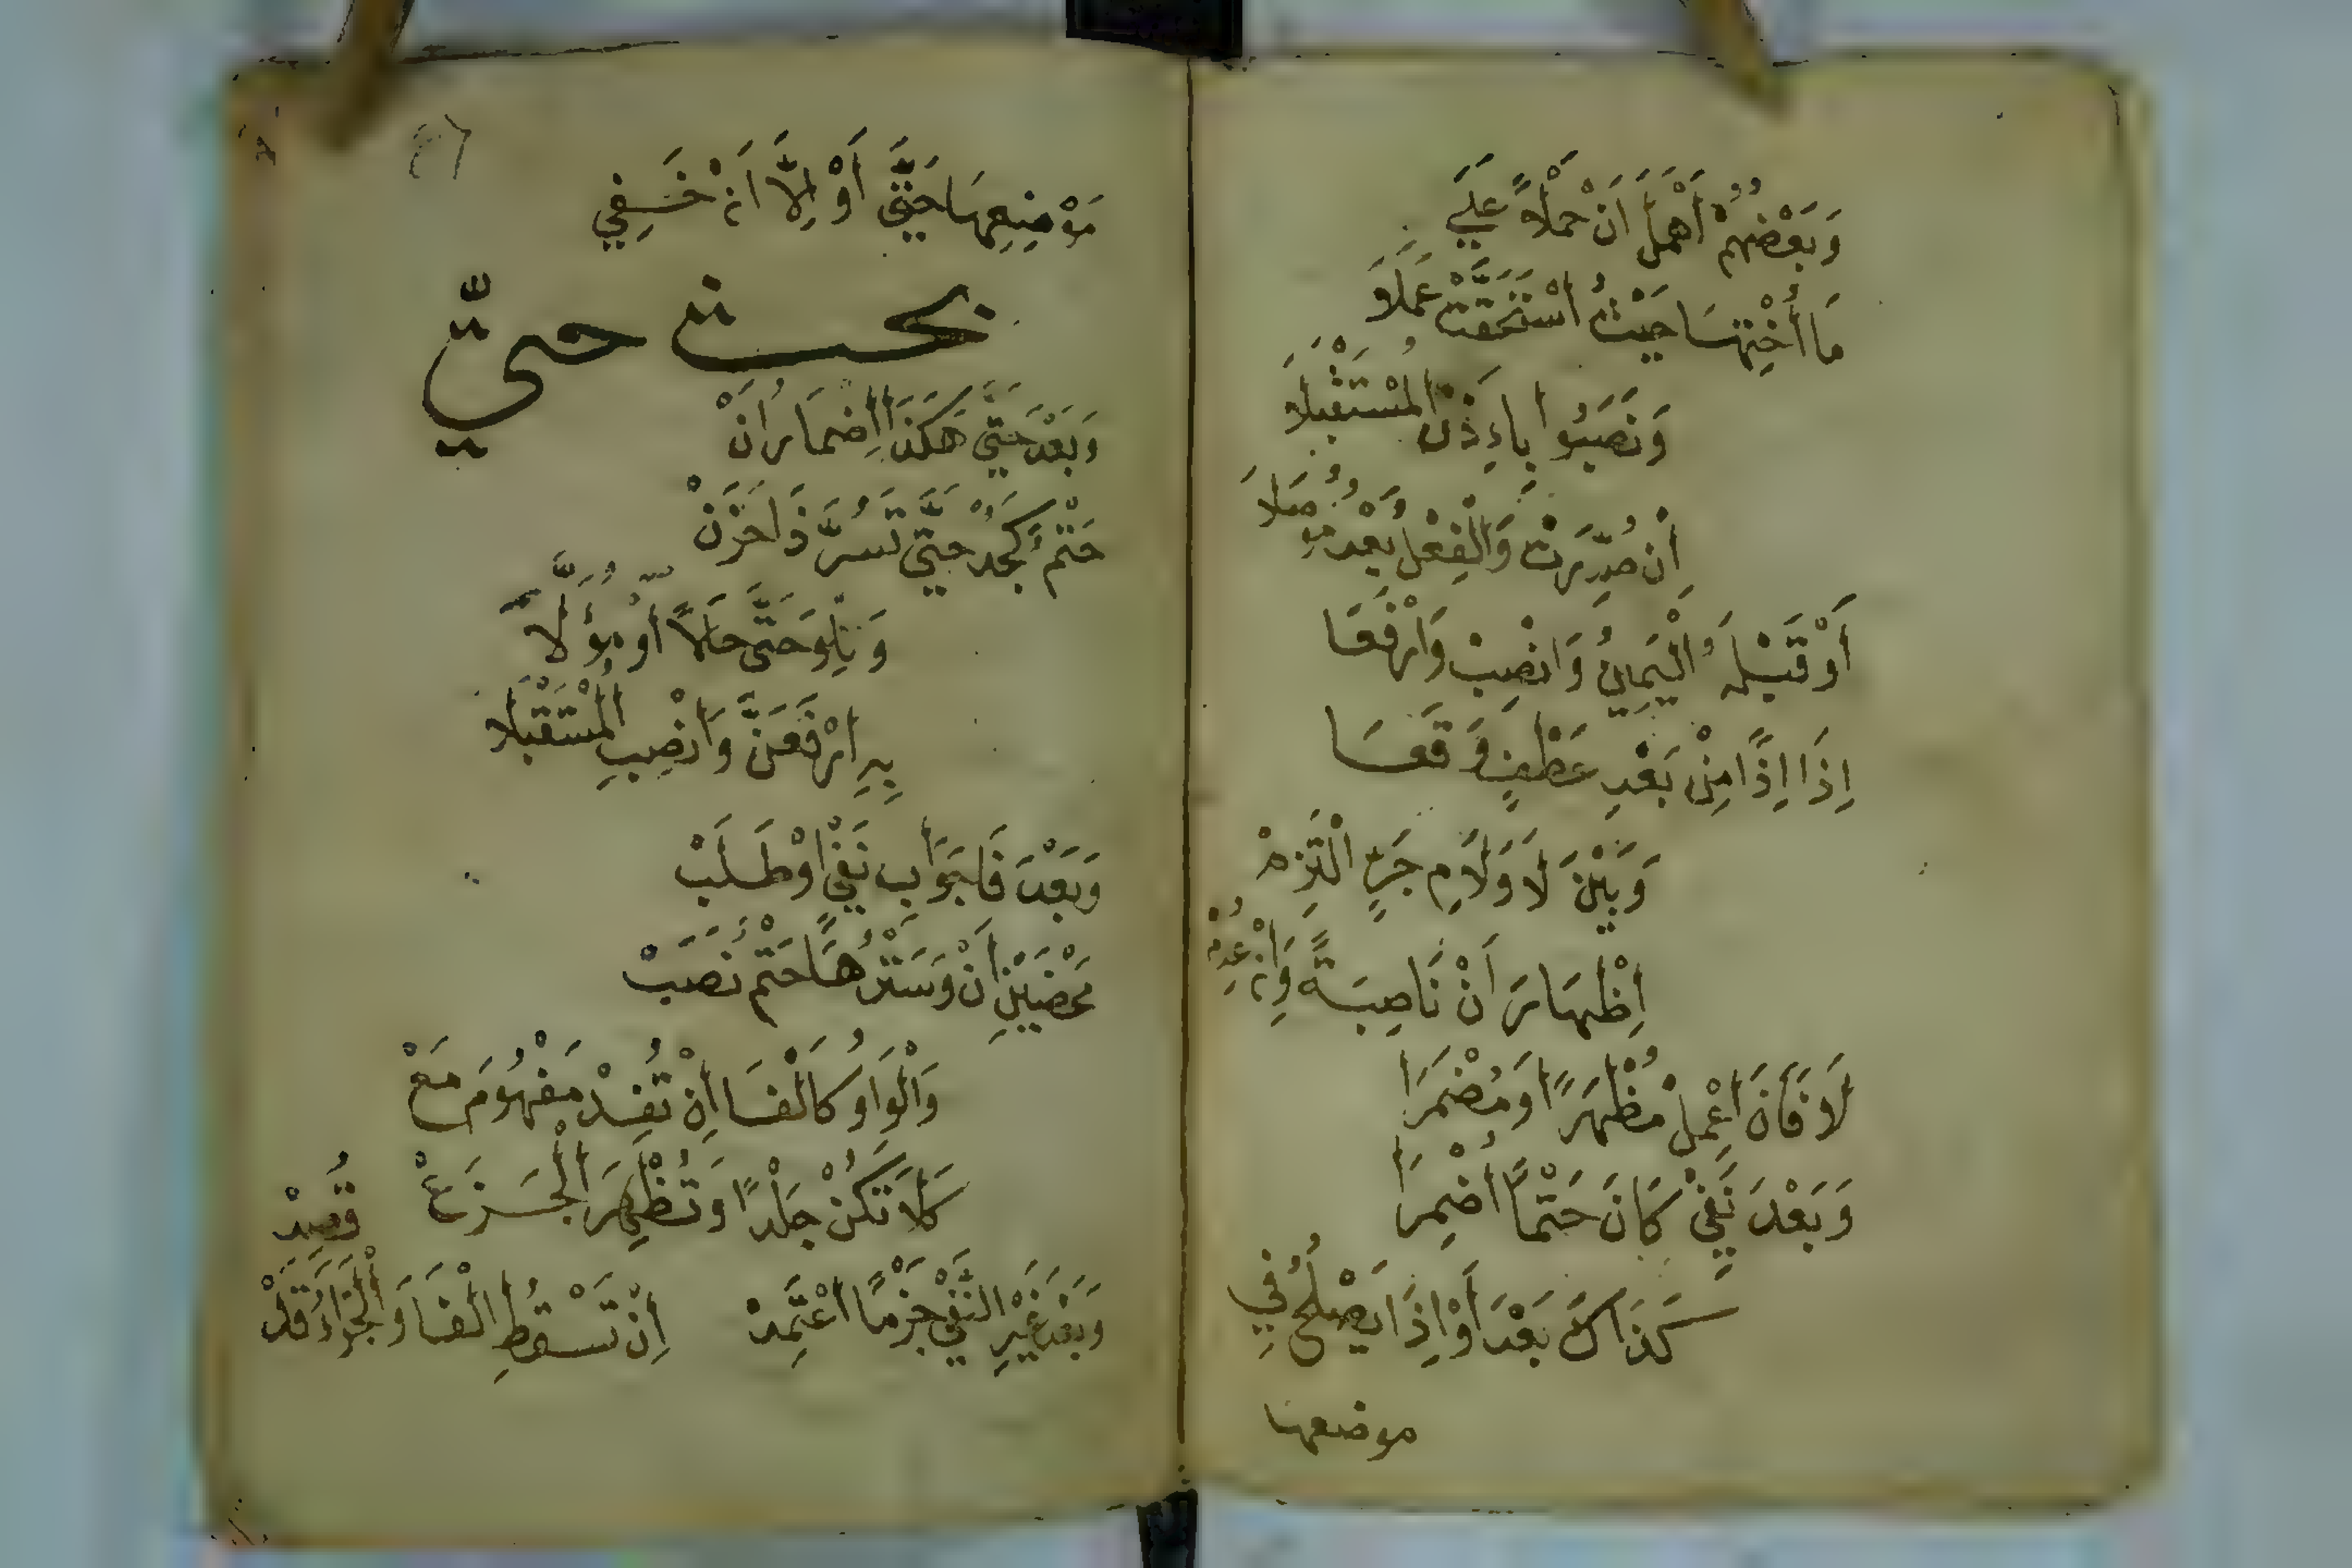 وَبَعْضُهُمْ أَهْمَلَ أَنْ حَمْلاً عَلَى
مَا أُخْتِهَا حَيْثُ اسْتَحَقَّتْ عَمَلَا
وَنَصَبُوا بِإِذَنِ الْمُسْتَقْبَلَا
أَنْ صُدِّرَتْ وَالْفِعْلُ بَعْدُ مُوصَلَا
أَوْ قَبْلَهُ الْيَمِينُ وَانْصِبْ وَارْفَعَا
إِذَا إِذًا مِنْ بَعْدِ عَطْفٍ وَقَعَا
وَبَيْنَ لَا وَلَامِ جَرٍّ الْتُزِمْ
إِظْهَارَ أَنْ نَاصِبَةً وَإِنْ عُدِمْ
لَا فَأَنَ اعْمِلْ مُظْهَرًا أَوْ مُضْمَرَا
وَبَعْدَ نَفْيِ كَانَ حَتْمًا أُضْمِرَا
كَذَاكَ بَعْدَ أَوْ إِذَا يَصْلُحُ فِي
موضعها
مَوْضِعِهَا حَتَّى أَوْ إِلَّا أَنْ خَفِي
بحث حتىّ
وَبَعْدَ حَتَّى هَكَذَا إِضْمَارُ أَنْ
حَتْمٌ كَجُدْ حَتَّى تَسُرَّ ذَا حَزَنْ
وَتِلْوَ حَتَّى حَالًا أَوْ مُؤَلَّا
بِهِ ارْفَعَنَّ وَانْصِبِ الْمُسْتَقْبَلَا
وَبَعْدَ فَا جَوَابِ نَفْيٍ أَوْ طَلَبْ
مَحْضَيْنِ أَنْ وَسَتْرُهَا حَتْمٌ نَصَبْ
وَالْوَاوُ كَالْفَا إِنْ تُفِدْ مَفْهُومَ مَعْ
كَلَا تَكُنْ جَلْدًا وَتُظْهِرَ الْجَزَعْ
وَبَعْدَ غَيْرِ النَّفْيِ جَزْمًا اعْتَمِدْ
إِنْ تَسْقُطِ الْفَا وَالْجَزَاءُ قَدْ قُصِدْ